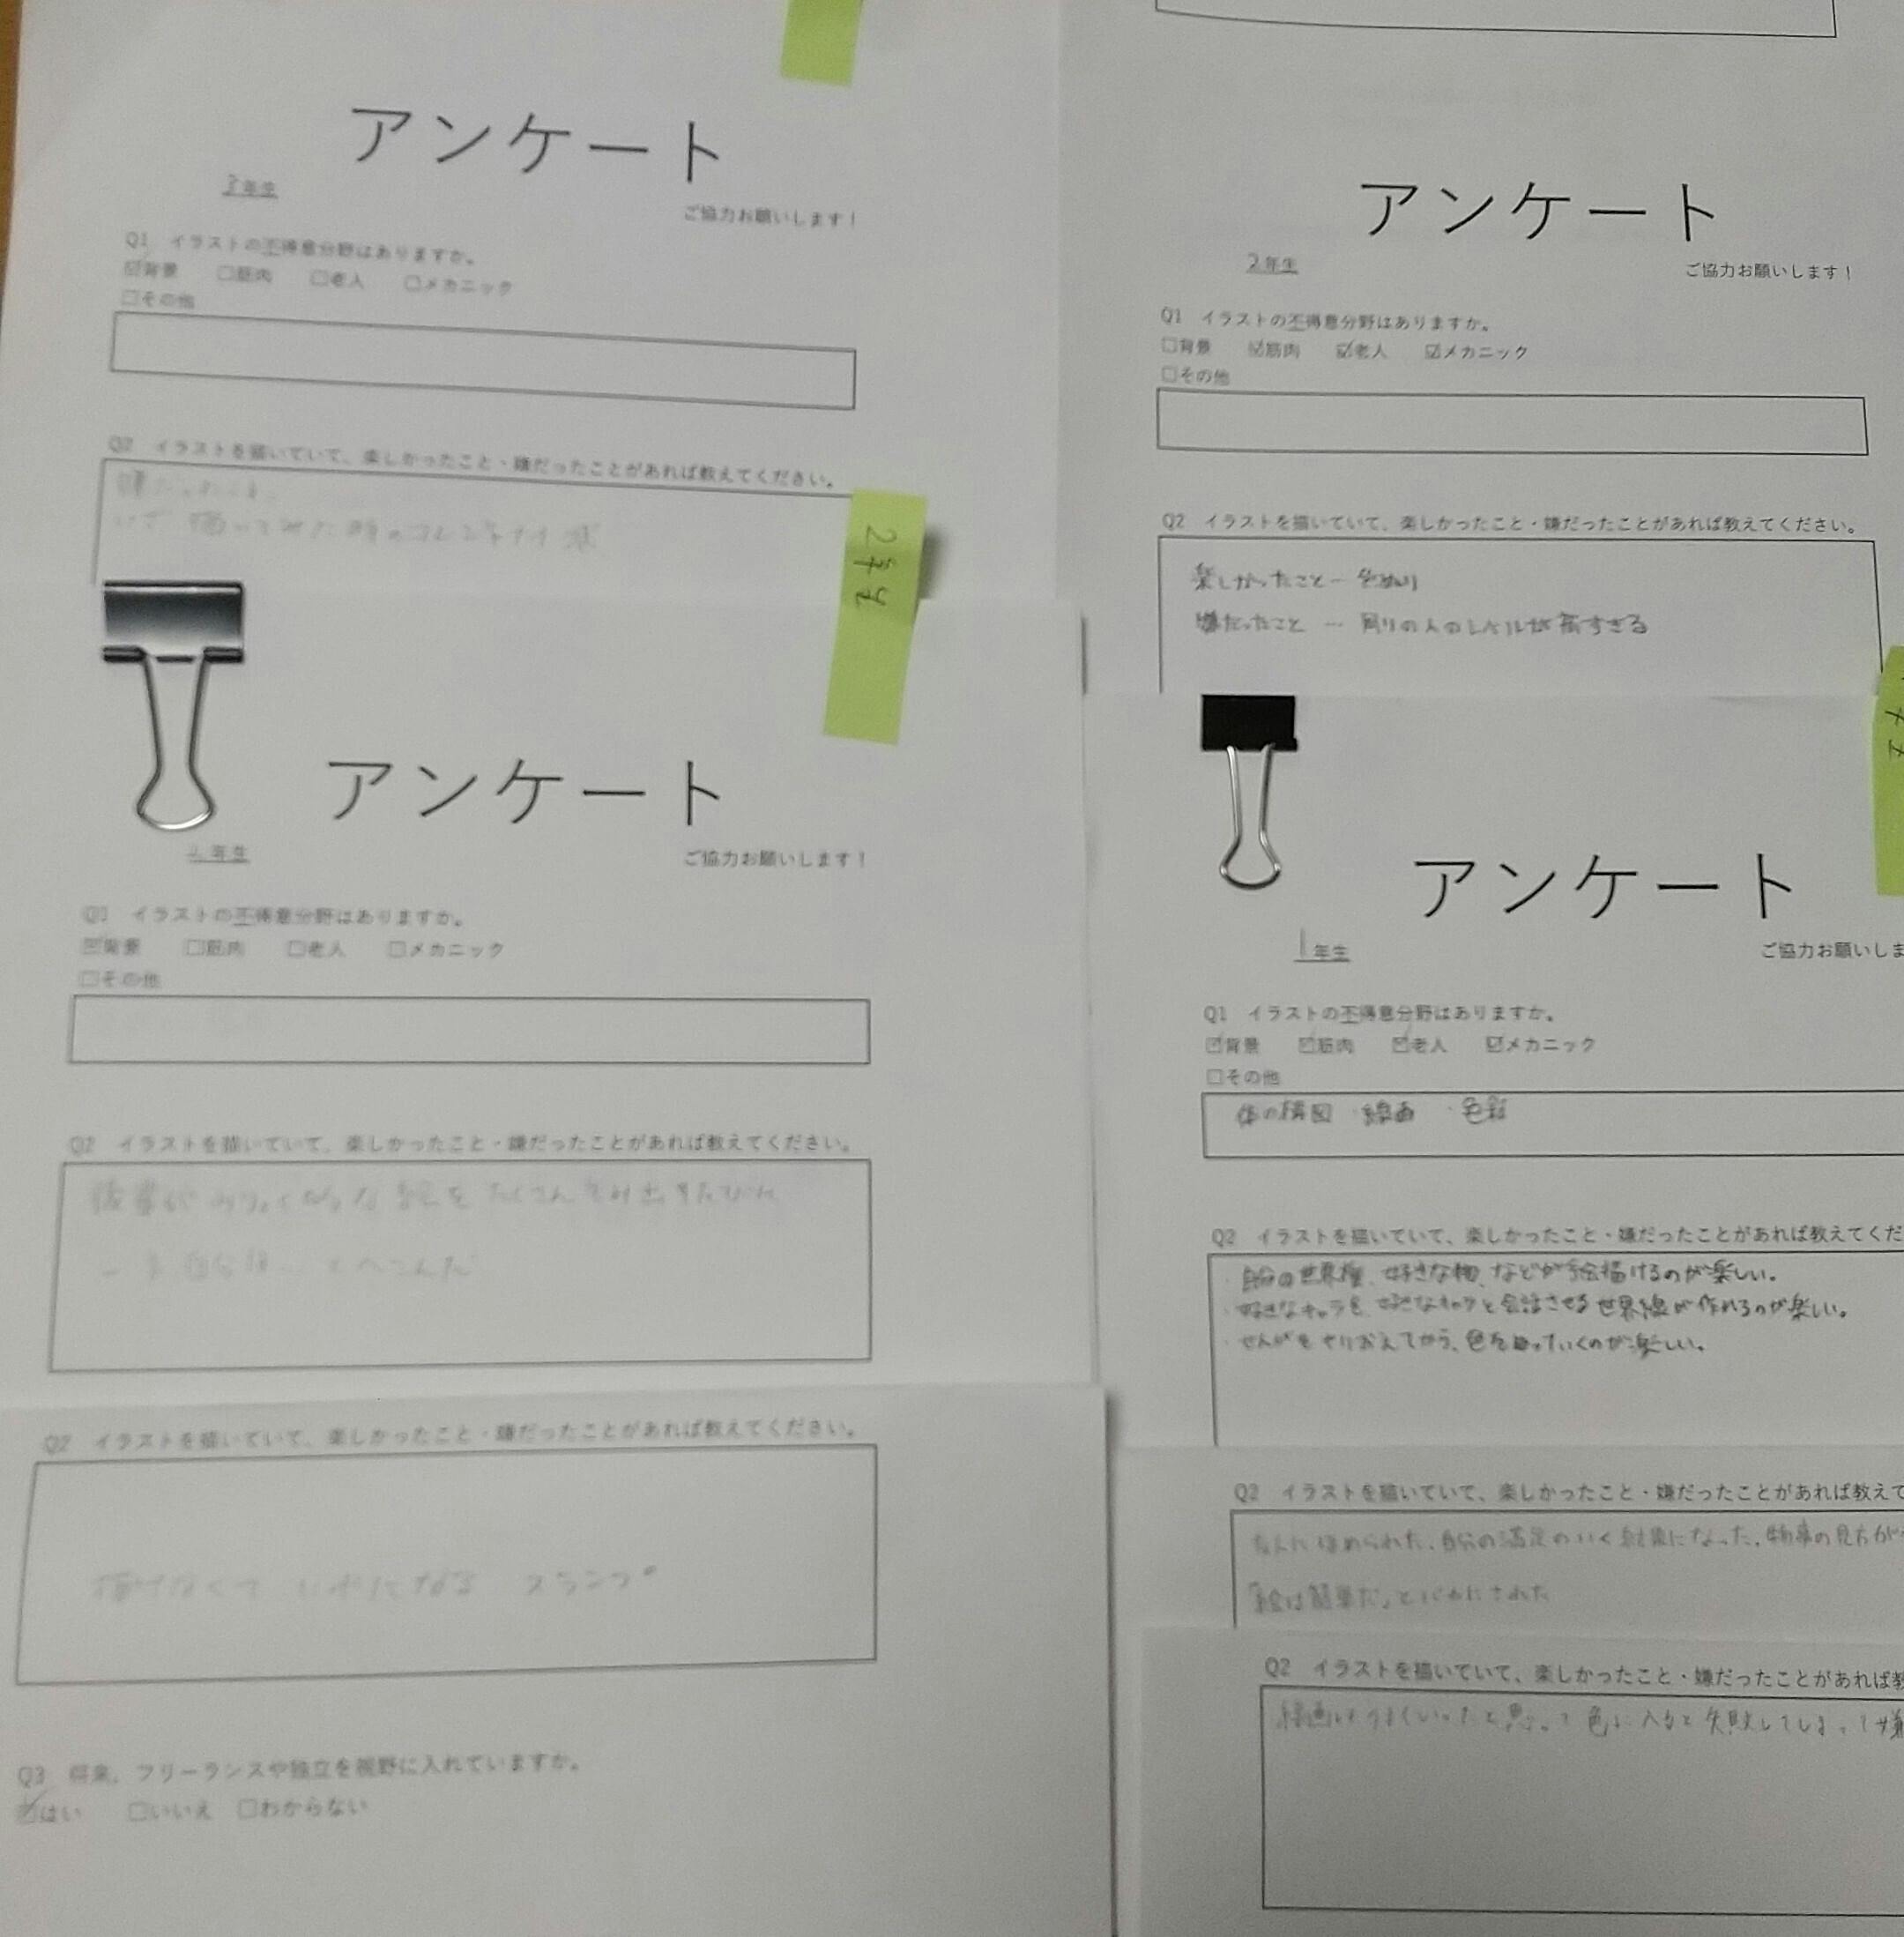 アンケート
年生
ご協力お願いします！
Q1　イラストの不得意分野はありますか。
☑背景　□筋肉　□老人　□メカニック
□その他
Q2　イラストを描いていて、楽しかったこと・嫌だったことがあれば教えてください。
嫌だったこと
描いてみた時のコレジャナイ感
2年生
アンケート
年生
ご協力お願いします！
Q1　イラストの不得意分野はありますか。
☑背景　□筋肉　□老人　□メカニック
□その他
Q2　イラストを描いていて、楽しかったこと・嫌だったことがあれば教えてください。
後輩が
自分は… とへこんだ
Q2　イラストを描いていて、楽しかったこと・嫌だったことがあれば教えてください。
描けなくて スランプ
Q3　将来、フリーランスや独立を視野に入れていますか。
☑はい　□いいえ　□わからない
アンケート
2年生
ご協力お願いします！
Q1　イラストの不得意分野はありますか。
□背景　☑筋肉　☑老人　☑メカニック
□その他
Q2　イラストを描いていて、楽しかったこと・嫌だったことがあれば教えてください。
楽しかったこと… 色ぬり
嫌だったこと … 周りの人のレベルが高すぎる
アンケート
1年生
ご協力お願いしま
Q1　イラストの不得意分野はありますか。
☑背景　☑筋肉　☑老人　☑メカニック
□その他
体の構図 ・線画 ・色彩
Q2　イラストを描いていて、楽しかったこと・嫌だったことがあれば教えてくだ
・自分の世界、好きな物、などが絵描けるのが楽しい。
・好きなキャラを、好きなキャラと会話させる世界線が作れるのが楽しい。
・せんがをやりおえてから、色をぬっていくのが楽しい。
Q2　イラストを描いていて、楽しかったこと・嫌だったことがあれば教えて
ほめられた、自分の満足のいく結果になった、物事の見方が
「絵は簡単だ」とバカにされた
Q2　イラストを描いていて、楽しかったこと・嫌だったことがあれば
線画はうまくいったと思って色に入ると失敗してしまって嫌